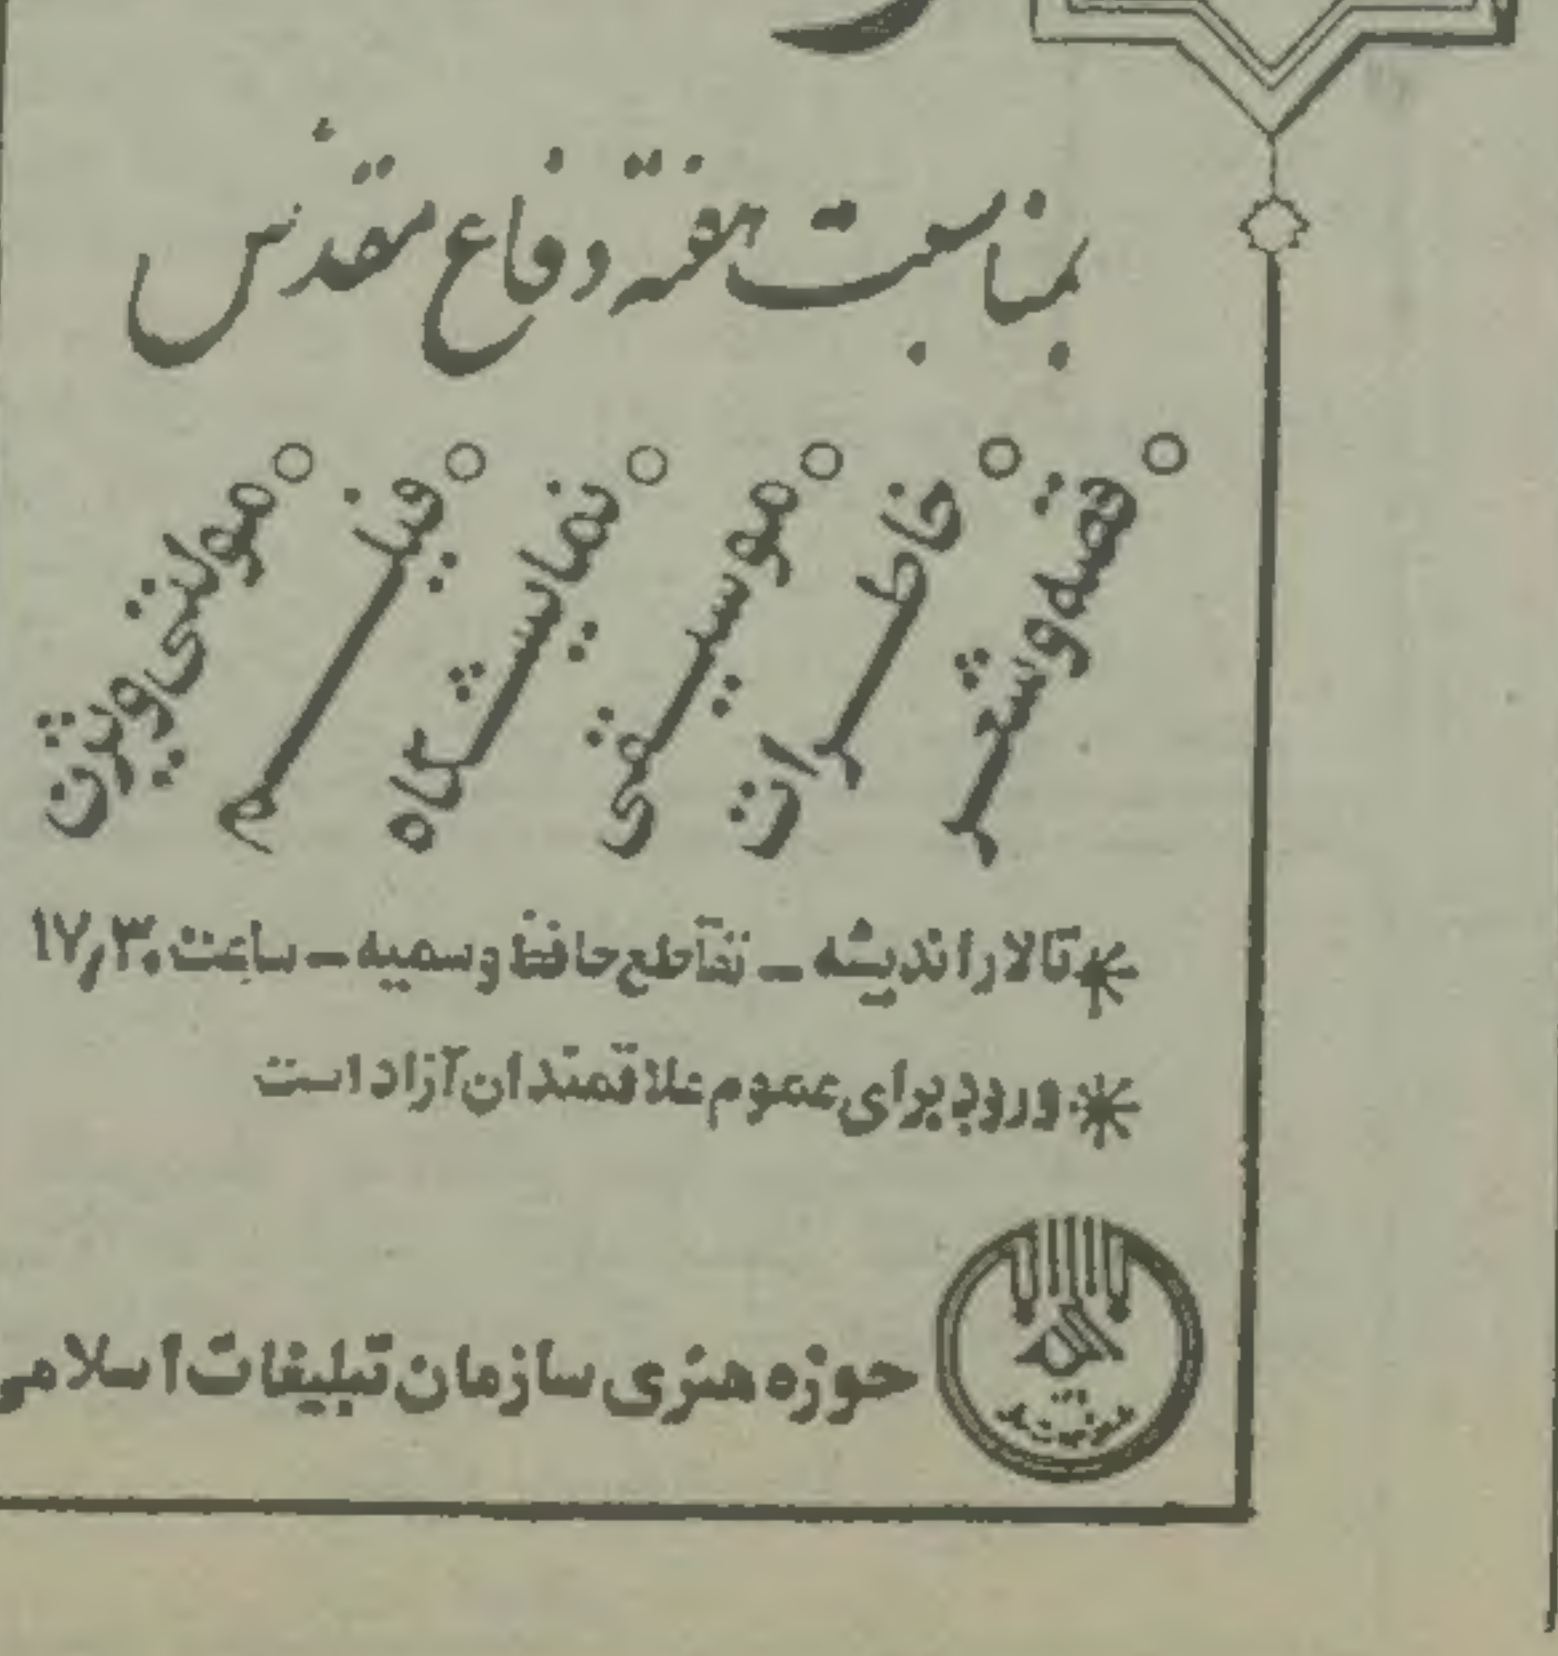 بمناسبت هفته دفاع مقدس
○ قصه و شعر
○ خاطرات
○ موسیقی
○ نمایشگاه
○ فیلم
○ مولتی ویژن
* تالار اندیشه ـ تقاطع حافظ و سمیه ـ ساعت ۱۷٫۳۰
* ورود برای عموم علاقمندان آزاد است
حوزه هنری سازمان تبلیغات اسلامی